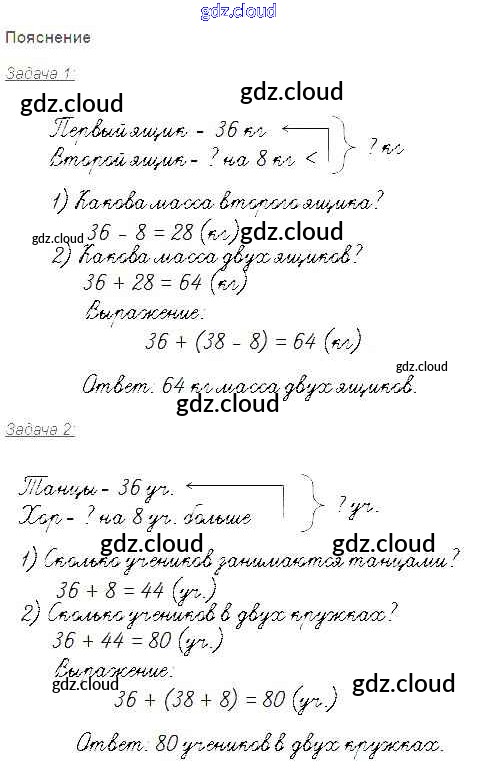 gdz.cloud
Пояснение
Задача 1:
gdz.cloud
gdz.cloud
Первый ящик - 36 кг
Второй ящик - ? на 8 кг <
? кг
1) Какова масса второго ящика?
36 - 8 = 28 (кг)
gdz.cloud
gdz.cloud
2) Какова масса двух ящиков?
36 + 28 = 64 (кг)
Выражение:
36 + (38 - 8) = 64 (кг)
gdz.cloud
Ответ: 64 кг масса двух ящиков.
gdz.cloud
Задача 2:
Танцы - 36 уч.
Хор - ? на 8 уч. больше
? уч.
gdz.cloud
gdz.cloud
1) Сколько учеников занимаются танцами?
36 + 8 = 44 (уч.)
2) Сколько учеников в двух кружках?
36 + 44 = 80 (уч.)
Выражение:
gdz.cloud
gdz.cloud
36 + (38 + 8) = 80 (уч.)
Ответ: 80 учеников в двух кружках.